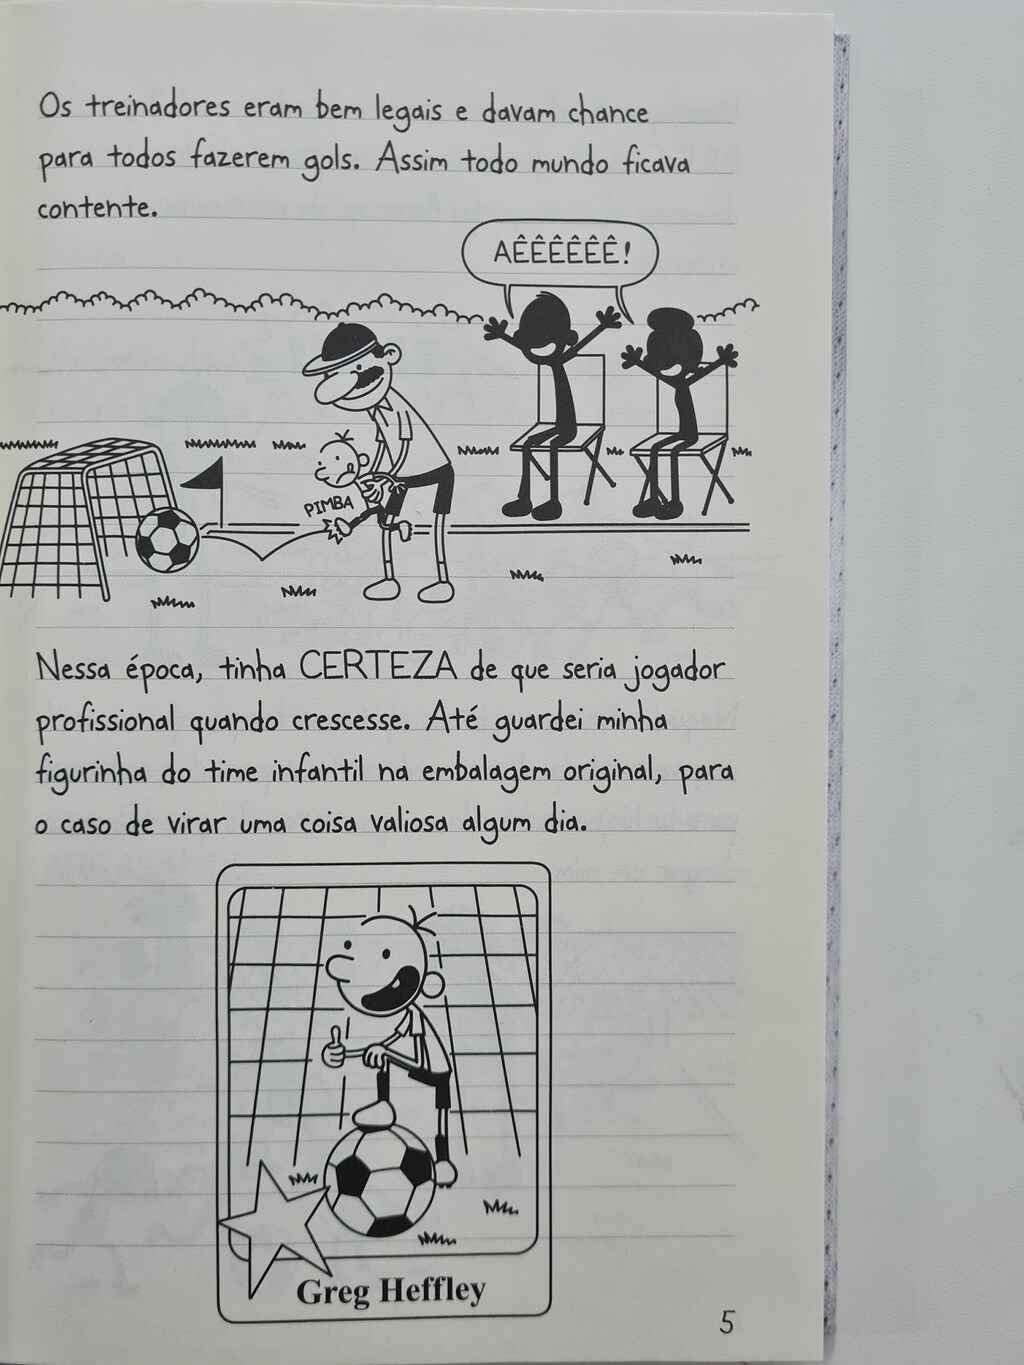 Os treinadores eram bem legais e davam chance
para todos fazerem gols. Assim todo mundo ficava
contente.
AÊÊÊÊÊÊ!
PIMBA
Nessa época, tinha CERTEZA de que seria jogador
profissional quando crescesse. Até guardei minha
figurinha do time infantil na embalagem original, para
o caso de virar uma coisa valiosa algum dia.
Greg Heffley
5